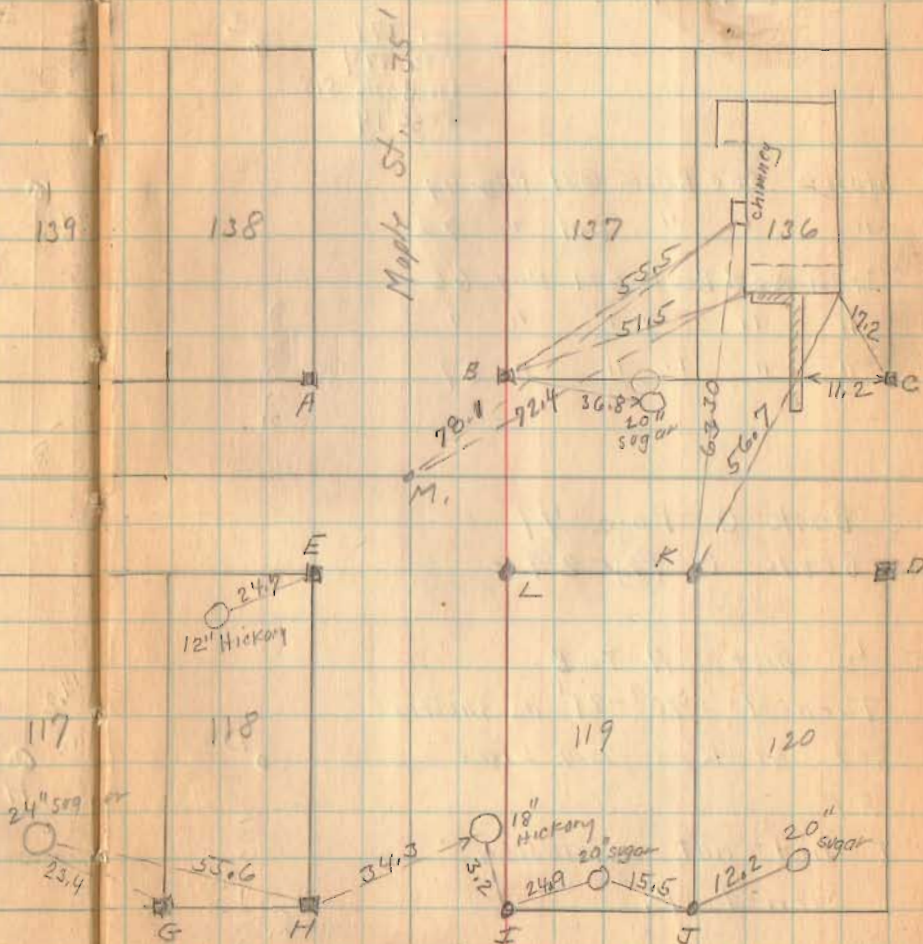 Maple St. 35'
139
138
137
136
chimney
55.5
51.5
17.2
A
B
36.8
20"
sugar
11.2
C
78.1
72.4
63.30
56.7
M.
E
L
K
D
24.7
12" Hickory
117
118
119
120
24" sugar
23.4
55.6
34.3
18"
Hickory
3.2
24.9
20" sugar
15.5
12.2
20"
sugar
G
H
I
J